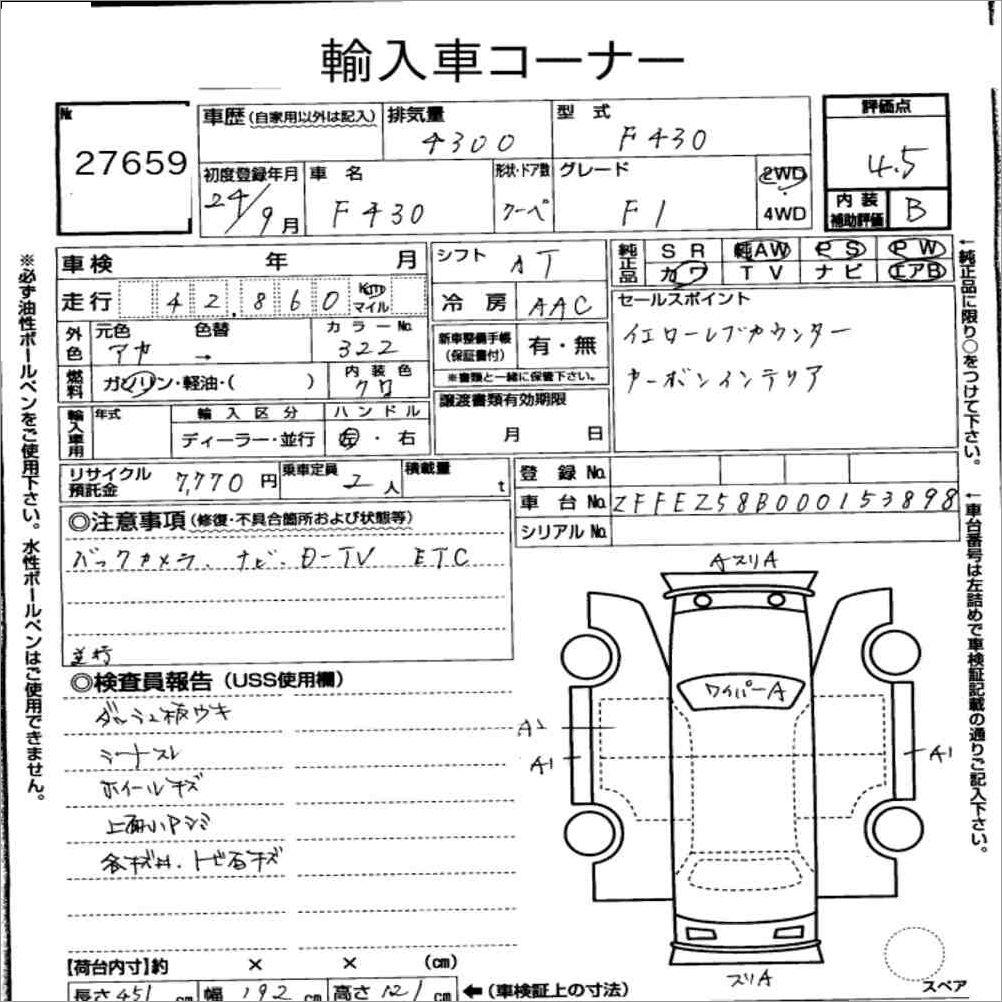 輸入車コーナー
№
27659
車歴(自家用以外は記入)
排気量
4300
型式
F430
評価点
4.5
内装補助評価
B
初度登録年月
24/9月
車名
F430
形状・ドア数
クーペ
グレード
F1
2WD
4WD
車検 年 月
シフト
AT
純正品
SR 純AW PS PW
カワ TV ナビ エアB
走行 42,860 Km マイル
冷房
AAC
セールスポイント
イエローレブカウンター
カーボンインテリア
外色
元色 色替
アカ →
カラーNo.
322
新車整備手帳(保証書付)
有・無
※書類と一緒に保管下さい。
燃料
ガソリン・軽油・( )
内装色
クロ
譲渡書類有効期限
月 日
輸入車用
年式
輸入区分
ディーラー・並行
ハンドル
左・右
リサイクル預託金
7,770円
乗車定員
2人
積載量
t
登録No.
車台No.
ZFFEZ58B000153898
シリアルNo.
◎注意事項(修復・不具合箇所および状態等)
バックカメラ、ナビ、D-TV ETC
並行
◎検査員報告(USS使用欄)
ダッシュ板ウキ
シートスレ
ホイールキズ
小キズ、トビ石キズ
AスリA
ワイパーA
A2
A1
A1
スリA
スペア
【荷台内寸】約 × × (cm)
長さ451cm 幅192cm 高さ121cm ←(車検証上の寸法)
※必ず油性ボールペンをご使用下さい。水性ボールペンはご使用できません。
←純正品に限り○をつけて下さい。
←車台番号は左詰めで車検証記載の通りご記入下さい。